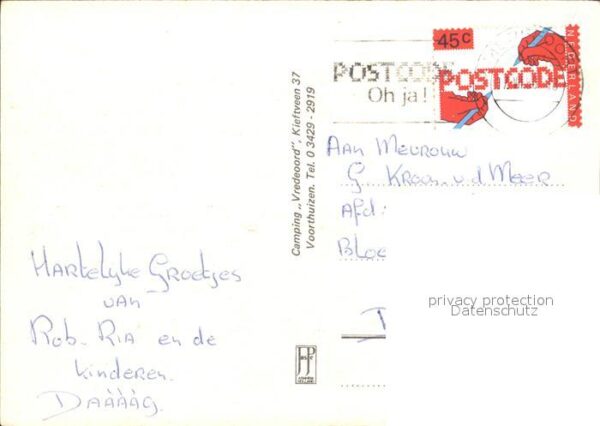 45 c
NEDERLAND
POSTCODE
POSTCODE
Oh ja!
Camping „Vredeoord", Kieftveen 37
Voorthuizen. Tel. 0 3429 - 2919
Aan Mevrouw
G. Kroon-v.d Meer
Afd:
Bloe
privacy protection
Datenschutz
Hartelijke Groetjes
van
Rob. Ria en de
kinderen.
Daáááág.